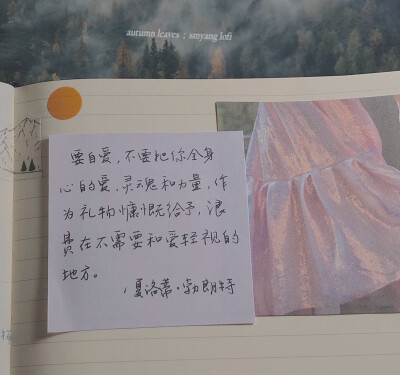 autumn leaves ; smyang lofi
要自爱，不要把你全身
心的爱，灵魂和力量，作
为礼物慷慨给予，浪
费在不需要和受轻视的
地方。
，夏洛蒂·勃朗特